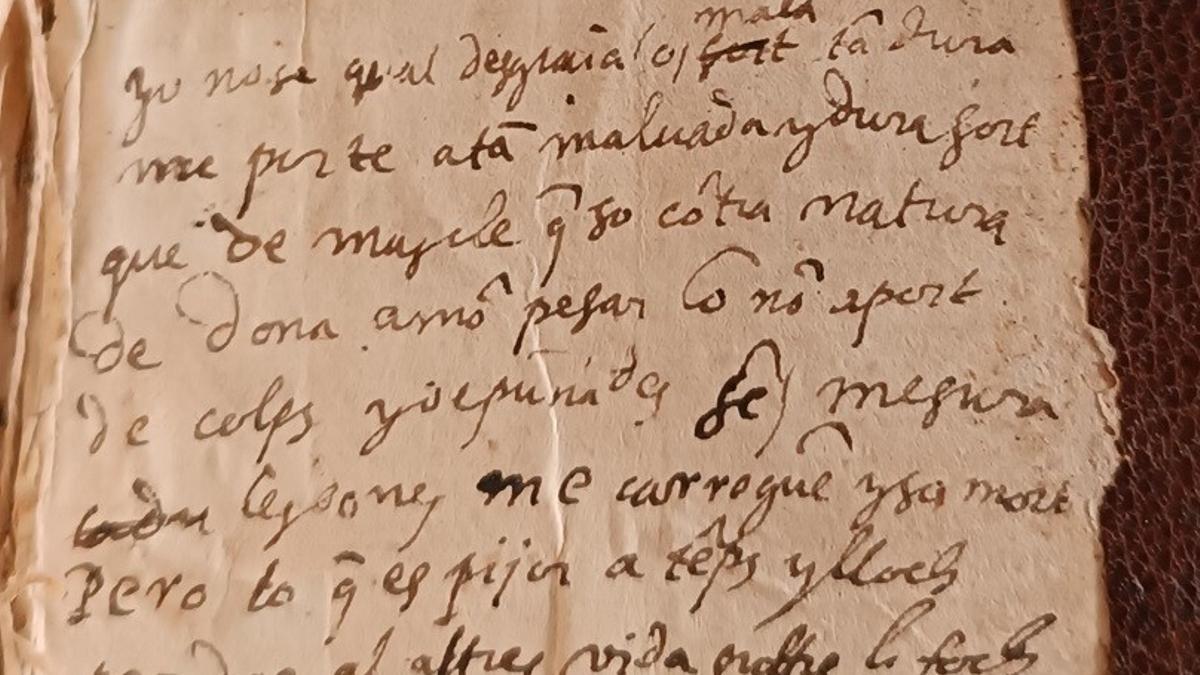 mala
yo no se qual desgraia o) sort tã dura
me porte a tã maluada y dura sort
que de mascle q̃ so cõtra natura
de dona a mõ pesar lo nõ aport
de colps y de puñades se) mesura
les dones me carreguẽ y so mort
Pero lo q̃ es pijor a tẽps y lloch
altres vida li foch